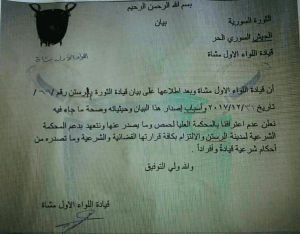 بسم الله الرحمن الرحيم
الثورة السورية
بيان
الجيش السوري الحر
قيادة اللواء الاول مشاة
أن قيادة اللواء الاول مشاة وبعد اطلاعها على بيان قيادة الثورة بالرستن رقم
تاريخ 2017/12/ وأسباب إصدار هذا البيان وحيثياته وصحة ما جاء فيه
نعلن عدم اعترافنا بالمحكمة العليا لحمص وما يصدر عنها ونتعهد بدعم المحكمة
الشرعية لمدينة الرستن والالتزام بكافة قراراتها القضائية والشرعية وما تصدره من
أحكام شرعية قيادة وأفراداً
والله ولي التوفيق
قيادة اللواء الاول مشاة